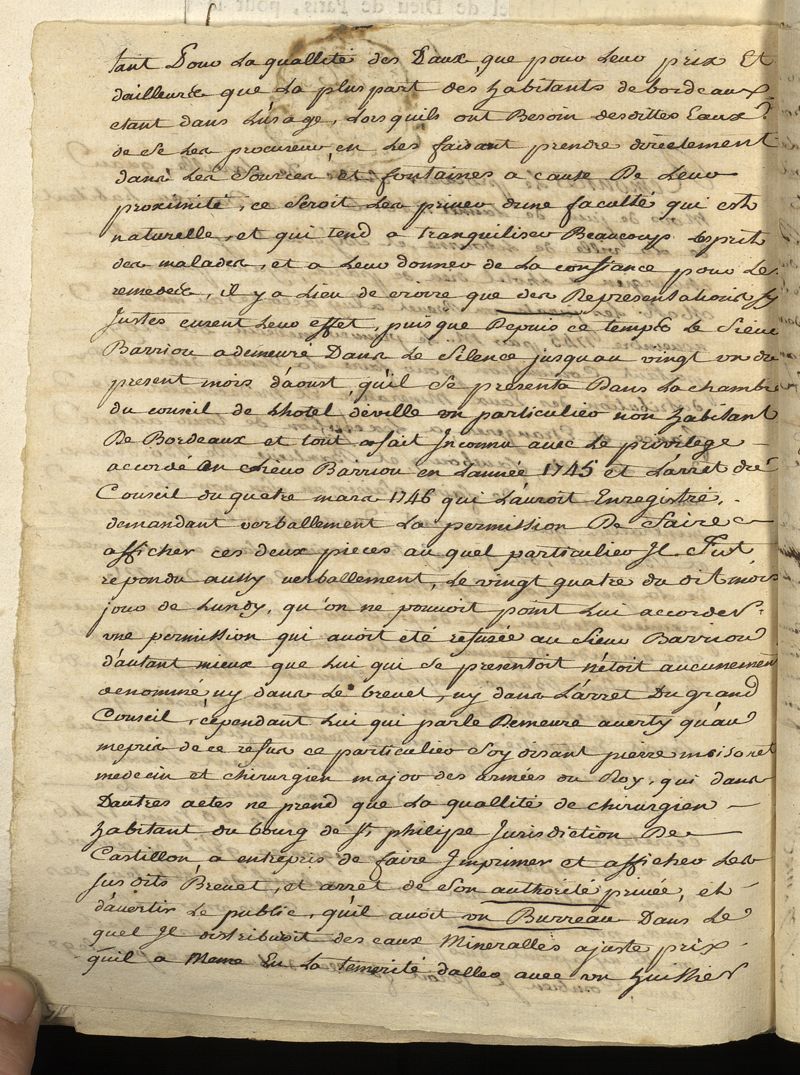 et de Dieu de Paris, pour les
tant Pour La quallité des Eaux que pour Leur prix Et
dailleurs que La pluspart des habitants de bordeaux
etant dans L'usage, Lorsquils ont Besoin desdittes Eaux
de Se Les procurer en Les faisant prendre directement
dans Les Sources et fontaines a cause De Leur
proximité, ce Seroit Les priver d'une faculté qui est
naturelle, et qui tend a tranquiliser Beaucoup Lesprit
des malades, et a Leur donner de La confiance pour Les
remedes, il y a Lieu de croire que des Representations Sy
Justes eurent Leur effet, puisque Depuis ce temps Le Sieur
Barriou a demeuré Dans Le Silence jusqu'au vingt un du
present mois d'aoust, qu'il Se presenta Dans La chambre
du conseil de Lhotel deville un particulier non habitant
De Bordeaux et tout afait Inconnu avec Le privilege
accordé au Sieur Barriou en Lannée 1745 et L'arret du
Conseil du quatre mars 1746 qui L'auroit Enregistré,
demandant verballement La permission De faire
afficher ces deux pieces au quel particulier Il Fut
repondu aussy verballement, Le vingt quatre du dit mois
jour de Lundy, qu'on ne pouvoit point Lui accorder
une permission qui avoit été refusée au Sieur Barriou
d'autant mieux que Lui qui Se presentoit n'étoit aucunement
denommé ny dans Le brevet, ny dans L'arret Du grand
Conseil, cependant Lui qui parle Demeure averty qu'au
mepris de ce refus ce particulier Soy disant pierre
medecin et chirurgien major des armées du Roy, qui dans
D'autres actes ne prend que La quallité de chirurgien
habitant du bourg de St philipe Jurisdiction De
Castillon, a entrepris de faire Imprimer et afficher Les
Susdits Brevet, et arret de Son authorité privée, et
d'avertir Le public, qu'il avoit un Burreau Dans Le
quel Il distribuoit des eaux Minerallés a juste prix
qu'il a Meme Eu La temerité daller avec un huissier